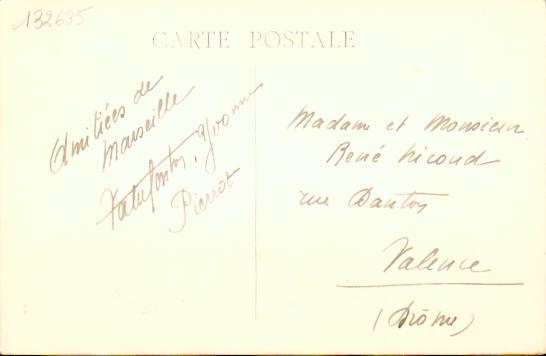 132635
CARTE POSTALE
Amitiés de
Marseille
Yvonne
Pierrot
Madame et Monsieur
René Nicoud
rue Danton
Valence
(Drôme)